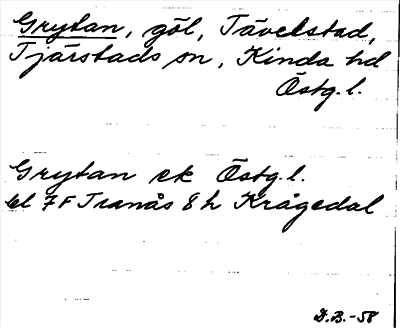 Grytan, göl, Tävelstad,
Tjärstads sn, Kinda hd
Östg.l.
Grytan ek Östg.l.
bl 7F Tranås 8 h Krågedal
D.B.-58